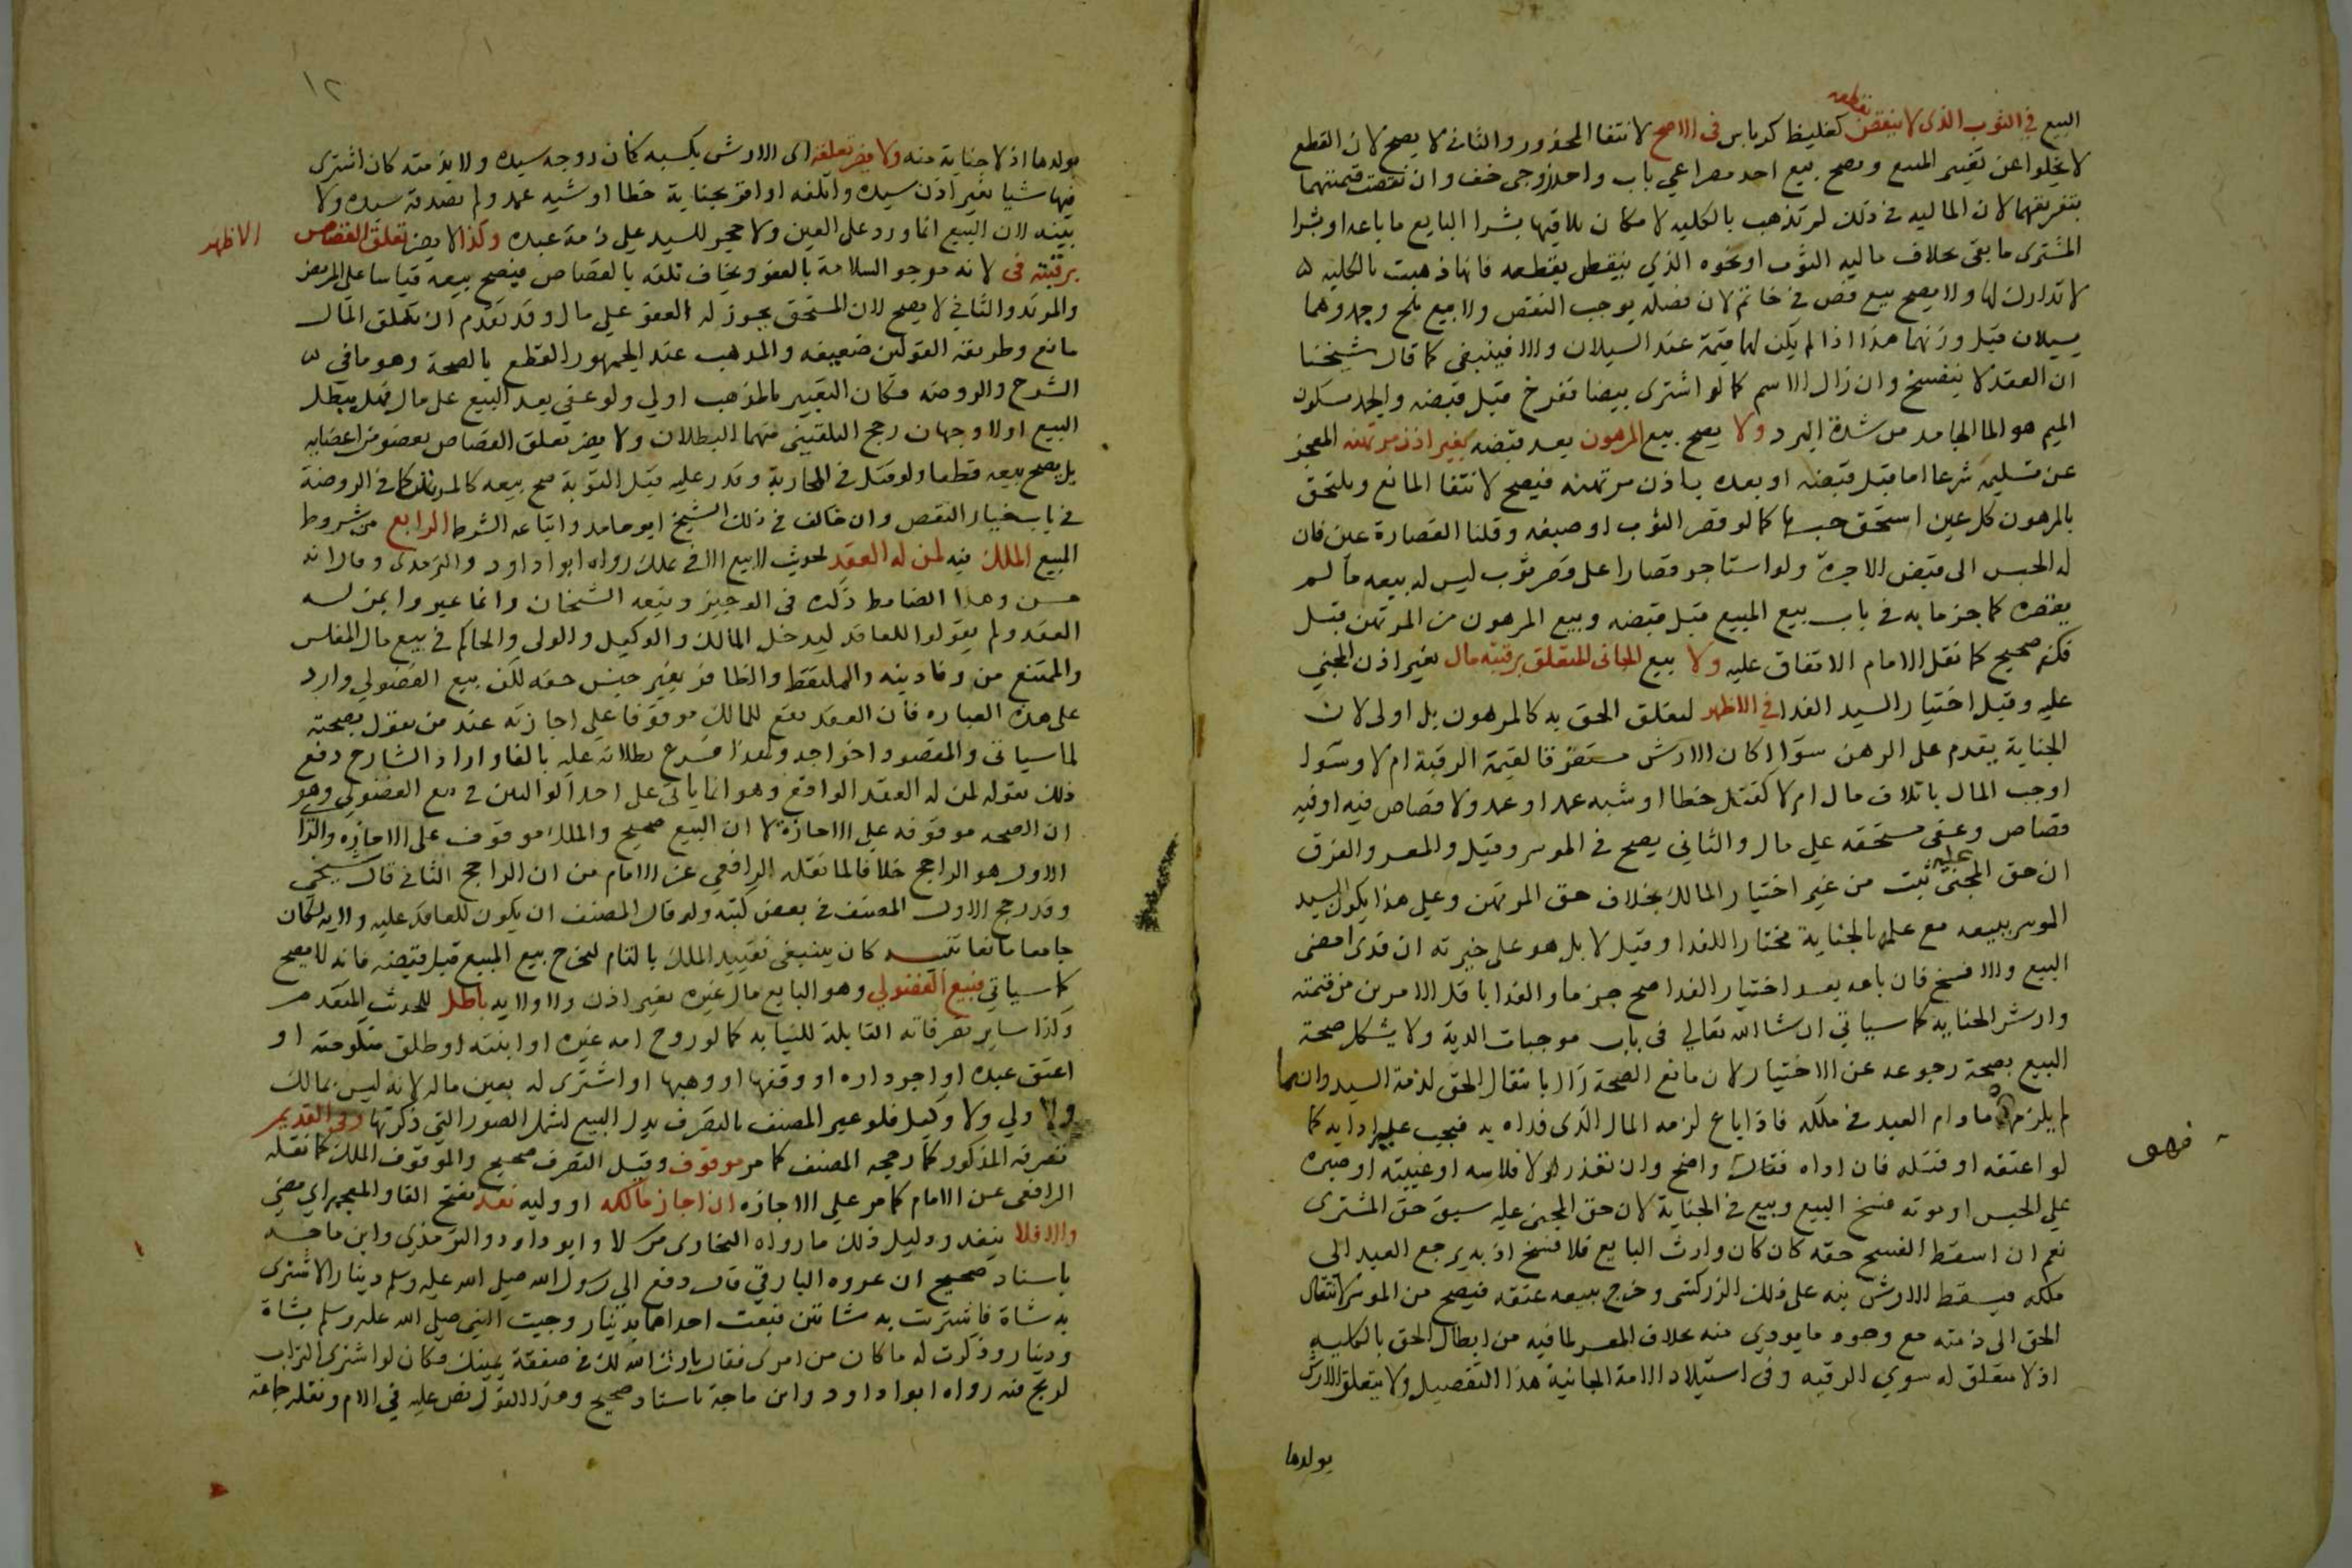 البيع في الثوب الذي لا ينقص بقطعه كغليظ كرباس في الاصح لانتفا المحذور والثاني لا يصح لان القطع
لا يخلوا عن تغيير المبيع ويصح بيع احد مصراعي باب واحد زوجي خف وان نقصت قيمتهما
بتفريقهما لان الماليه في ذلك لم تذهب بالكليه لامكان تلافيها بشرا البايع ما باعه او بشرا
المشتري ما بقي بخلاف ماليه الثوب او نحوه الذي ينقص بقطعه فانها ذهبت بالكليه
لا تدارك لها ولا يصح بيع فص في خاتم لان فصله يوجب النقص ولا بيع ثلج وجمد وهما
يسيلان قبل وزنهما هذا اذا لم يكن لهما قيمة عند السيلان والا فينبغي كما قال شيخنا
ان العقد لا ينفسخ وان زال الاسم كما لو اشترى بيضا ففرخ قبل قبضه والجمد بسكون
الميم هو الما الجامد من شدة البرد ولا يصح بيع المرهون بعد قبضه بغير اذن مرتهنه للعجز
عن تسليمه شرعا اما قبل قبضه او بعده باذن مرتهنه فيصح لانتفا المانع ويلتحق
بالمرهون كل عين استحق حبسها كما لو قصر الثوب او صبغه وقلنا القصارة عين فان
له الحبس الى قبض الاجرة ولو استاجر قصارا على قصر ثوب ليس له بيعه ما لم
يقصره كما جزما به في باب بيع المبيع قبل قبضه وبيع المرهون من المرتهن قبل
فكه صحيح كما نقل الامام الاتفاق عليه ولا بيع الجاني المتعلق برقبته مال بغير اذن المجني
عليه وقبل اختيار السيد الفدا في الاظهر لتعلق الحق به كالمرهون بل اولى لان
الجناية يقدم على الرهن سوا اكان الارش مستغرقا لقيمة الرقبة ام لا وسوا
اوجب المال باتلاف مال ام لا كقتل خطا او شبه عمد او عمد ولا قصاص فيه او فيه
قصاص وعفى مستحقه على مال والثاني يصح في الموسر وقيل والمعسر والفرق
ان حق المجني عليه ثبت من غير اختيار المالك بخلاف حق المرتهن وعلى هذا يكون السيد
الموسر ببيعه مع علمه بالجناية مختارا للفدا وقيل لا بل هو على خيرته ان فدى امضى
البيع والا فسخ فان باعه بعد اختيار الفدا صح جزما والفدا باقل الامرين من قيمته
وارش الجنايه كما سياتي ان شا الله تعالي في باب موجبات الدية ولا يشكل صحة
البيع بصحة رجوعه عن الاختيار لان مانع الصحة زال بانتقال الحق لذمة السيد وان
لم يلزمها ما دام العبد في ملكه فاذا باع لزمه المال الذي فداه به فيجب عليه اداءه كما
لو اعتقه او قتله فان اداه فذاك واضح وان تعذر لافلاسه او غيبته او صبره
على الحبس او موته فسخ البيع وبيع في الجناية لان حق المجني عليه سبق حق المشترى
نعم ان اسقط الفسخ حقه كان كان وارث البايع فلا فسخ اذ به يرجع العبد الى
ملكه فيسقط الارش نبه على ذلك الزركشي وخرج ببيعه عتقه فيصح من الموسر لانتقال
الحق الى ذمته مع وجود ما يودي منه بخلاف المعسر لما فيه من ابطال الحق بالكليه
اذ لا متعلق له سوي الرقبه وفي استيلاد الامة الجانية هذا التفصيل ولا يتعلق الارش
بولدها
فهو
١٢
بولدها اذ لا جناية منه ولا يضر تعلقه اى الارش بكسبه كان زوجه سيده ولا بذمته كان اشترى
فيها شيا بغير اذن سيده واتلفه او اقر بجناية خطا او شبه عمد ولم يصدقه سيده ولا
بينه لان البيع انما ورد على العين ولا حجر للسيد على ذمة عبده وكذا لا يضر تعلق القصاص
برقبته في الاظهر لانه مرجو السلامة بالعفو ويخاف تلفه بالقصاص فيصح بيعه قياسا على المريض
والمرتد والثاني لا يصح لان المستحق يجوز له العفو على مال وقد تقدم ان تعلق المال
مانع وطريقة القولين ضعيفه والمذهب عند الجمهور القطع بالصحة وهو ما في
الشرح والروضه فكان التعبير بالمذهب اولي ولو عفي بعد البيع على مال فهل يبطل
البيع اولا وجهان رجح البلقيني منهما البطلان ولا يضر تعلق القصاص بعضو من اعضايه
بل يصح بيعه قطعا ولو قتل في المحاربة وقدر عليه قبل التوبة صح بيعه كالمرتد كما في الروضة
في باب خيار النقص وان خالف في ذلك الشيخ ابو حامد واتباعه الشرط الرابع من شروط
المبيع الملك فيه لمن له العقد لحديث لا بيع الا في ملك رواه ابوا داود والترمذي وقال انه
حسن وهذا الضابط ذكره في الوجيز وتبعه الشيخان وانما عبروا بمن له
العقد ولم يقولوا للعاقد ليدخل المالك والوكيل والولي والحاكم في بيع مال المفلس
والممتنع من وفا دينه والملتقط والظافر بغير جنس حقه لكن بيع الفضولي وارد
على هذه العباره فان العقد يقع للمالك موقوفا على اجازته عند من يقول بصحته
لما سياتي والمقصود اخراجه ولهذا فرع بطلانه عليه بالفا واراد الشارح دفع
ذلك بقوله لمن له العقد الواقع وهو انما ياتي على احد القولين في بيع الفضولي وهو
ان الصحه موقوفه على الاجازة لا ان البيع صحيح والملك موقوف على الاجازه والقول
الاول هو الراجح خلافا لما نقله الرافعي عن الامام من ان الراجح الثاني قال شيخي
وقد رجح الاول المصنف في بعض كتبه ولو قال المصنف ان يكون للعاقد عليه ولايه لكان
جامعا مانعا تنبيه كان ينبغي تقييد الملك بالتام ليخرج بيع المبيع قبل قبضه فانه لا يصح
كما سياتي فبيع الفضولي وهو البايع مال غيره بغير اذن ولا ولايه باطل للحديث المتقدم
وكذا ساير تصرفاته القابلة للنيابه كما لو زوج امه غيره او ابنته او طلق منكوحته او
اعتق عبده او اجر داره او وقفها او وهبها او اشترى له بعين ماله لانه ليس بمالك
ولا ولي ولا وكيل فلو عبر المصنف بالتصرف بدل البيع لشمل الصور التي ذكرتها وفي القديم
تصرفه المذكور كما رجحه المصنف كما مر موقوف وقيل التصرف صحيح والموقوف الملك كما نقله
الرافعي عن الامام كما مر على الاجازه ان اجاز مالكه او وليه نفذ بفتح الفا والمعجمه اي مضي
والا فلا ينفذ ودليل ذلك ما رواه البخاري مرسلا وابو داود والترمذي وابن ماجه
باسناد صحيح ان عروه البارقي قال دفع الي رسول الله صلى الله عليه وسلم دينارا لاشترى
به شاة فاشتريت به شاتين فبعت احداهما بدينار وجيت النبي صلى الله عليه وسلم بشاة
ودينار وذكرت له ما كان من امرى فقال بارك الله لك في صفقة يمينك فكان لو اشترى التراب
لربح فيه رواه ابوا داود وابن ماجة باسناد صحيح وهذا القول نص عليه في الام ونقله جماعة